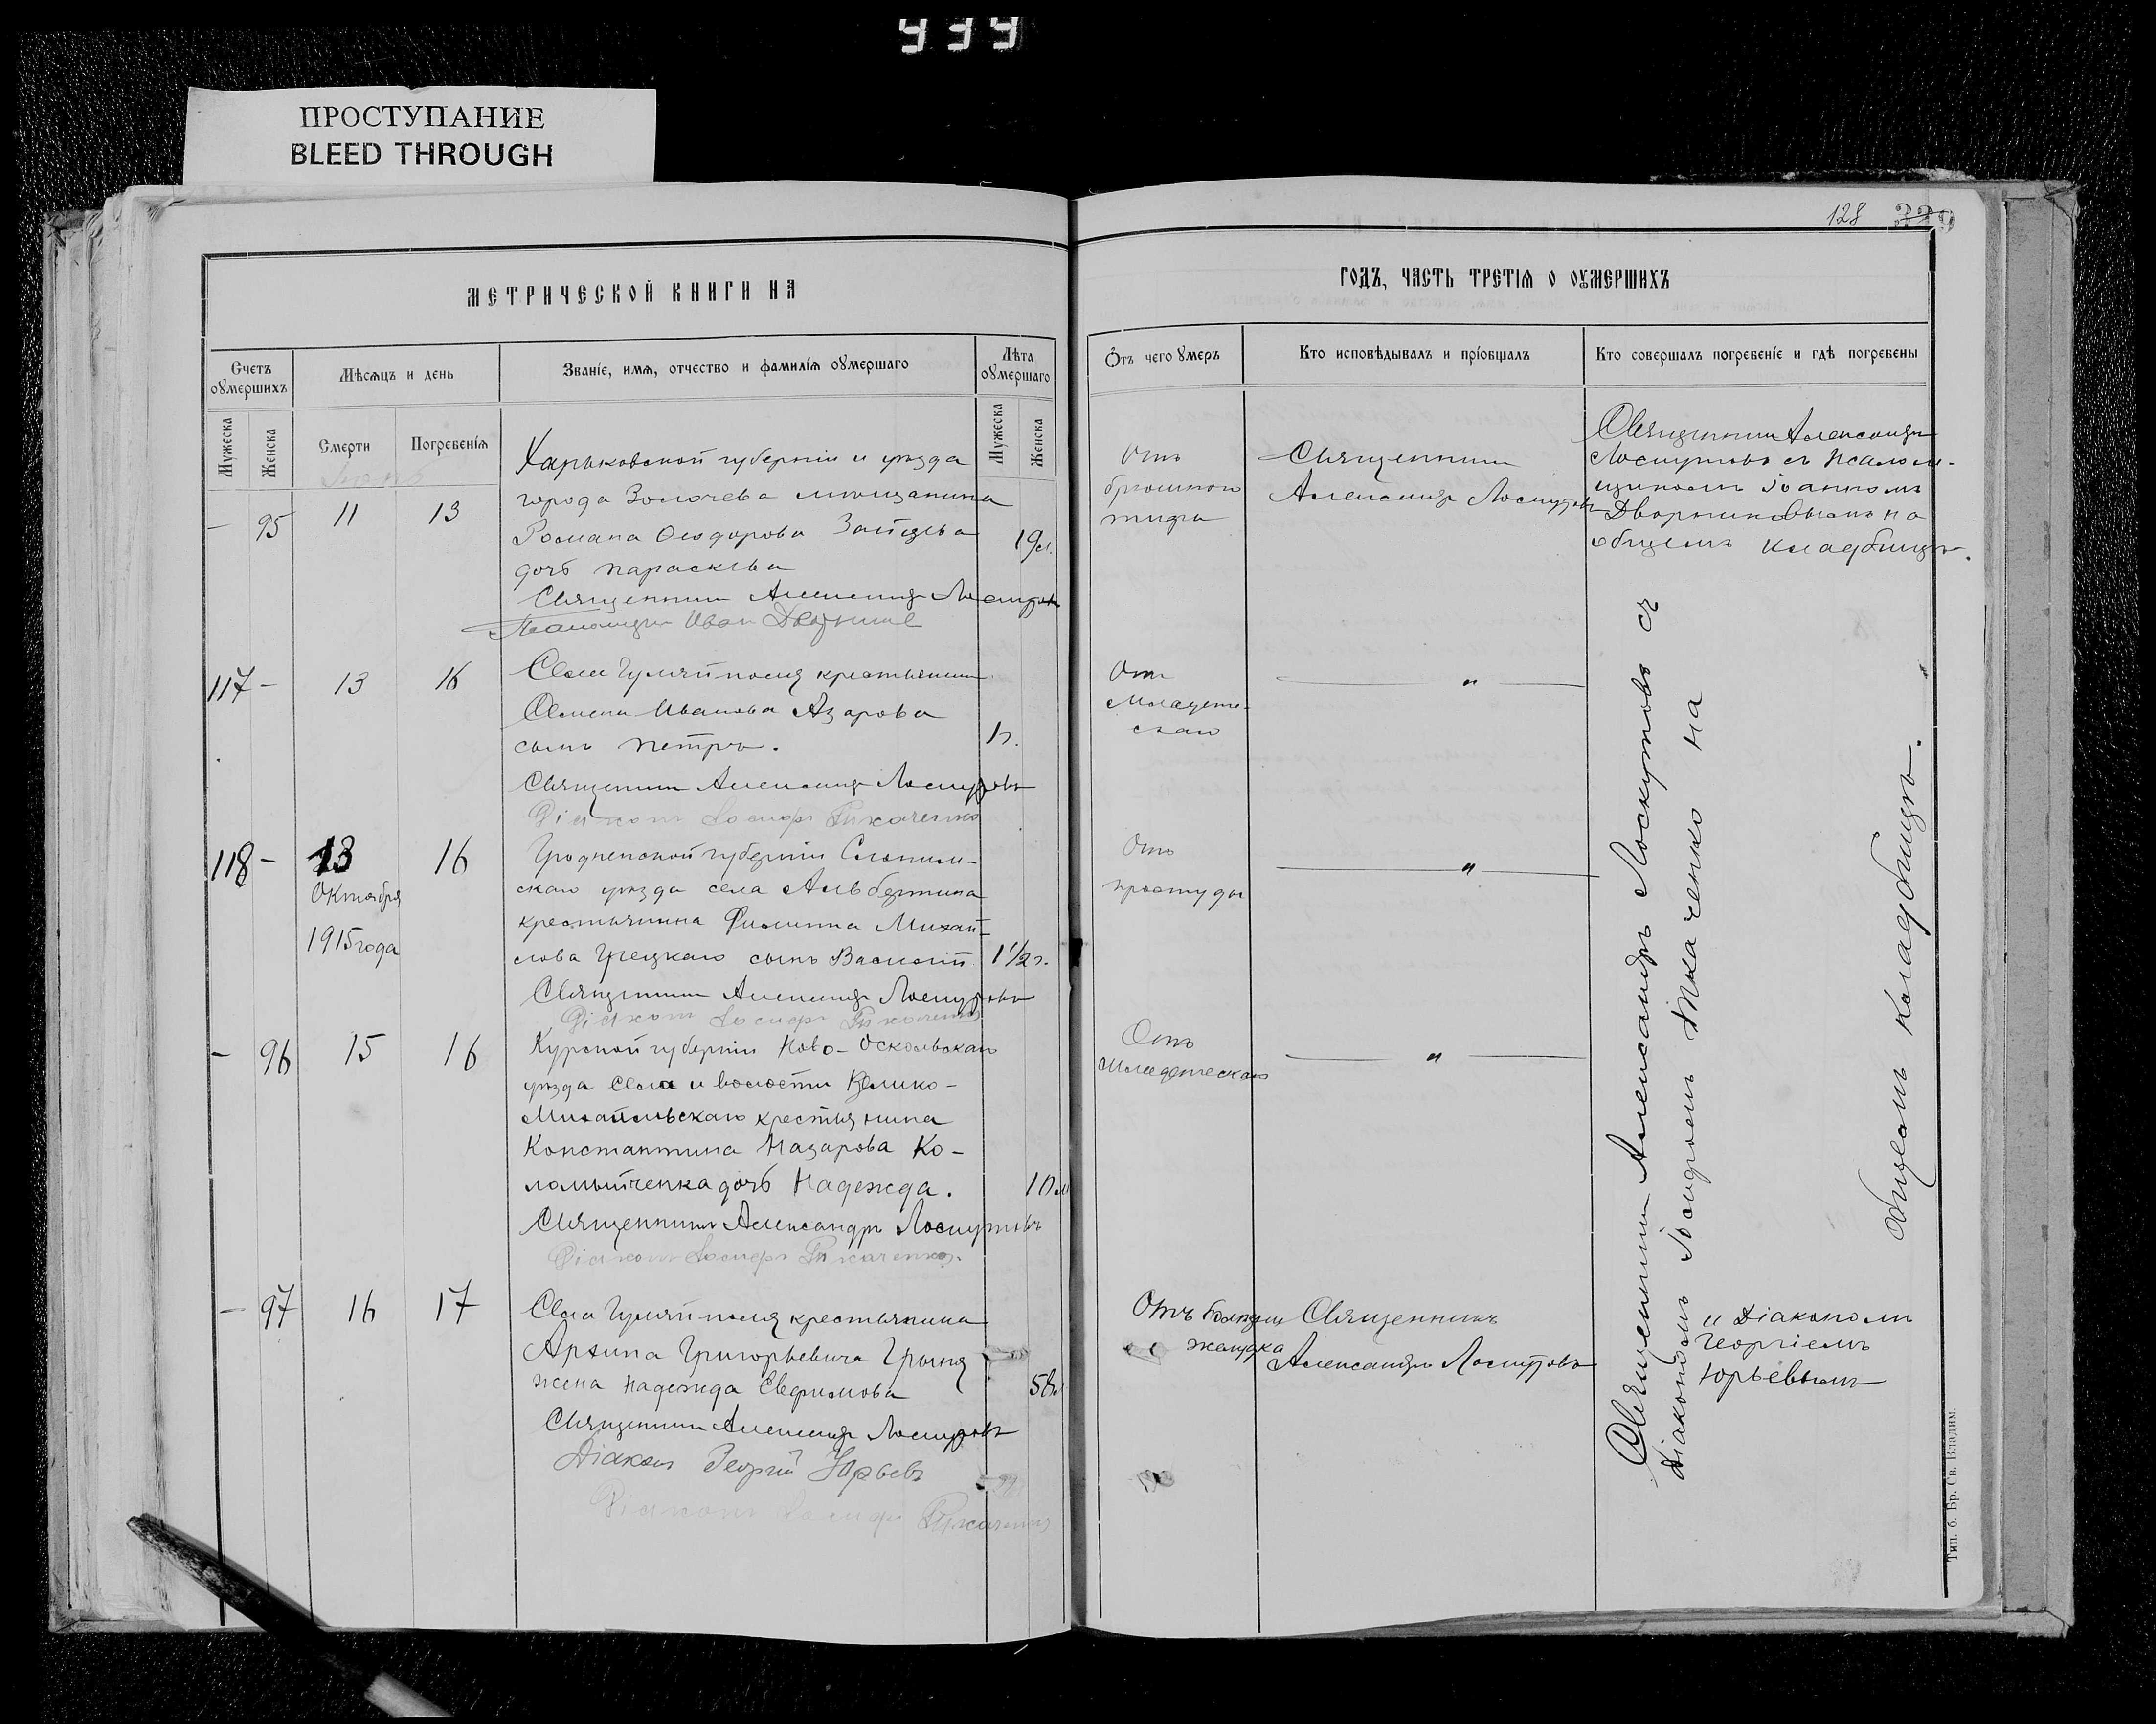 939
ПРОСТУПАНИЕ
BLEED THROUGH
128 339
МЕТРИЧЕСКОЙ КНИГИ НА
ГОДЪ, ЧАСТЬ ТРЕТІЯ О ОУМЕРШИХЪ
Счетъ оумершихъ
Мѣсяцъ и день
Званіе, имя, отчество и фамилія оумершаго
Лѣта оумершаго
Отъ чего умеръ
Кто исповѣдывалъ и пріобщалъ
Кто совершалъ погребеніе и гдѣ погребены
Мужеска
Женска
Смерти
Погребенія
Мужеска
Женска
— 95 11 13
Харьковской губерніи и уѣзда
города Золочева мѣщанина
Романа Ѳеодорова Зайцева
дочь Параскева
19
Священникъ Александръ Лоскутовъ
Псаломщикъ Иван Дворников
Отъ
брюшного
тифа
Священникъ
Александръ Лоскутовъ
Священникъ Александръ
Лоскутовъ съ псалом-
щикомъ Іоанномъ
Дворниковымъ на
общемъ кладбищѣ.
117 — 13 16
Села Гуляйполя крестьянина
Семена Иванова Азарова
сынъ Петръ.
1 г.
Священникъ Александръ Лоскутовъ
Діаконъ Іосифъ Ткаченко
Отъ
младенче-
скаго
— " —
118 — 13 16
Октября
1915 года
Гродненской губерніи Слоним-
скаго уѣзда села Альбертина
крестьянина Филиппа Михай-
лова Грецкаго сынъ Василій
1 1/2 г.
Священникъ Александръ Лоскутовъ
Діаконъ Іосифъ Ткаченко
Отъ
простуды
— " —
— 96 15 16
Курской губерніи Ново-Оскольскаго
уѣзда села и волости Велико-
Михайльскаго крестьянина
Константина Назарова Ко-
ломыйченка дочь Надежда.
10 м
Священникъ Александръ Лоскутовъ
Діаконъ Іосифъ Ткаченко.
Отъ
младенческаго
— " —
— 97 16 17
Села Гуляйполя крестьянина
Архипа Григорьевича
жена Надежда Евфимова
Священникъ Александръ Лоскутовъ
Діаконъ Георгій Юрьевъ
Діаконъ Іосифъ Ткаченко
Отъ болѣзни
желудка
Священникъ
Александръ Лоскутовъ
и Діакономъ
Георгіемъ
Юрьевымъ
Священникъ Александръ Лоскутовъ съ
діакономъ Іосифомъ Ткаченко на
общемъ кладбищѣ.
Тип. б. Бр. Св. Владим.